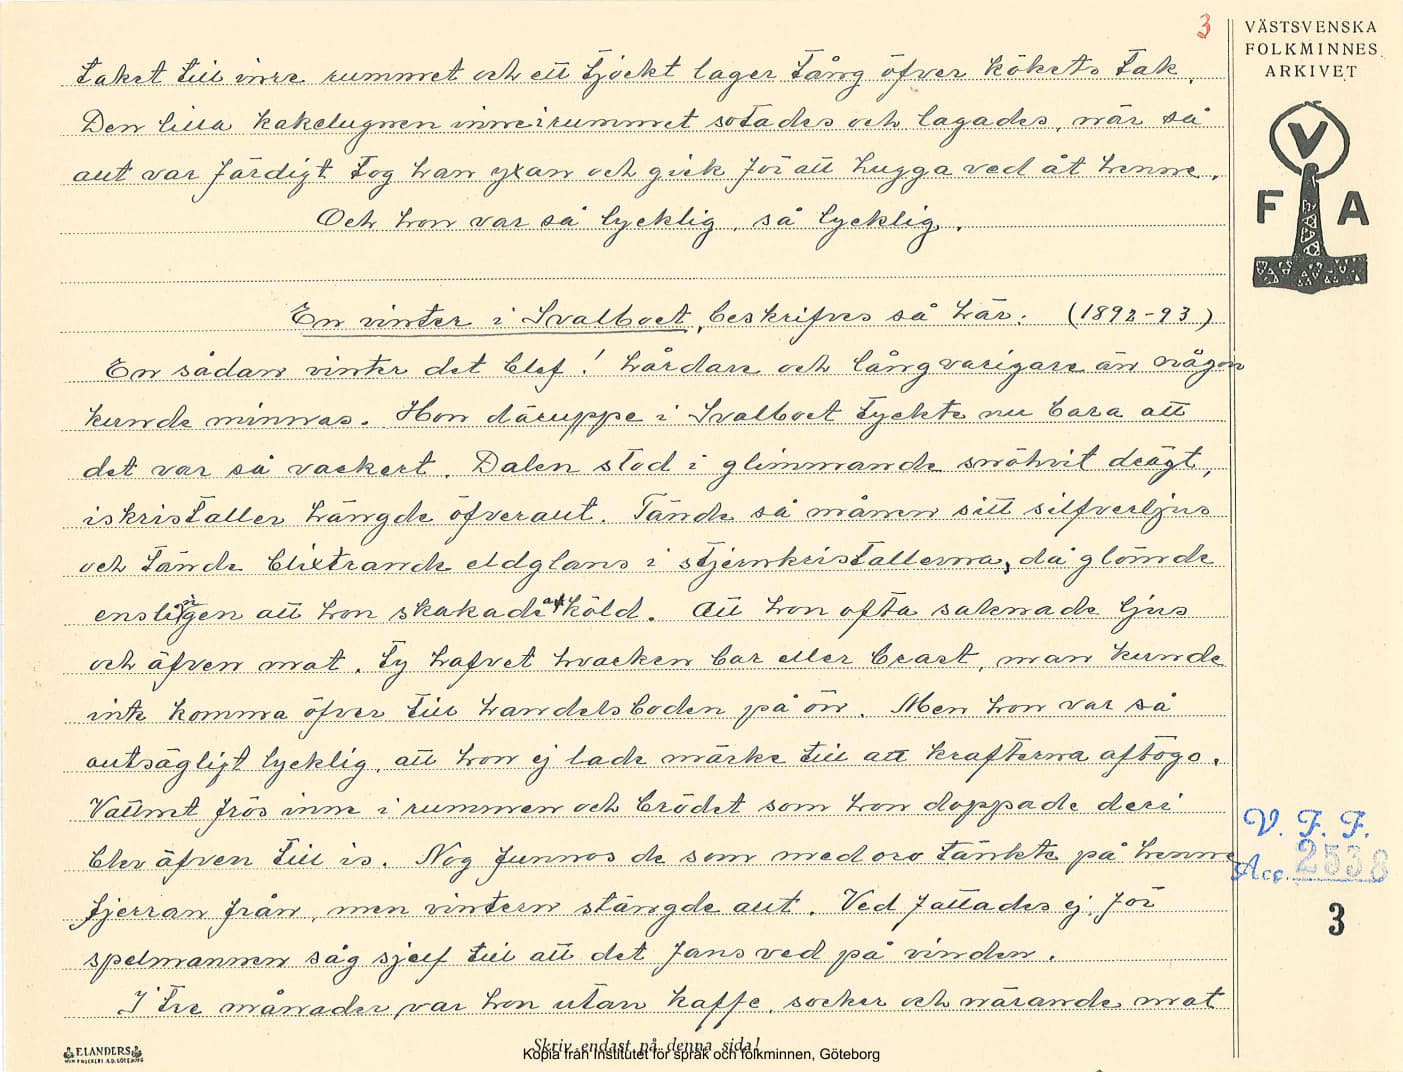 3
VÄSTSVENSKA
FOLKMINNES
ARKIVET
V
F A
taket till inre rummet och ett tjockt lager tång öfver kökets tak.
Den lilla kakelugnen inne i rummet sotades och lagades, når så
allt var färdigt tog han yxan och gick för att hugga ved åt henne.
Och hon var så lycklig, så lycklig.
En vinter i Svalboet, beskrifves så här: (1892-93)
En sådan vinter det blef! hårdare och långvarigare än någon
kunde minnas. Hon däruppe i Svalboet tyckte nu bara att
det var så vackert. Dalen stod i glimmande snöhvit drägt,
iskristaller hängde öfverallt. Tände så månen sitt silfverljus
och tände blixtrande eldglans i stjernkristallerna, då glömde
ensligen att hon skakade af köld. Att hon ofta saknade ljus
och äfven mat. Ty hafvet hvarken bar eller brast, man kunde
inte komma öfver till handelsboden på ön. Men hon var så
outsägligt lycklig, att hon ej lade märke till att krafterna aftogo.
Vattnet frös inne i rummen och brödet som hon doppade deri
blev äfven till is. Nog funnos de som med oro tänkte på henne
fjerran från, men vintern stängde allt. Ved fattades ej, för
spelmannen såg sjelf till att det fans ved på vinden.
I tre månader var hon utan kaffe, socker och närande mat
V. F. F.
Acc. 2538
3
ELANDERS
Skriv endast på denna sida!
Kopia från Institutet för språk och folkminnen, Göteborg